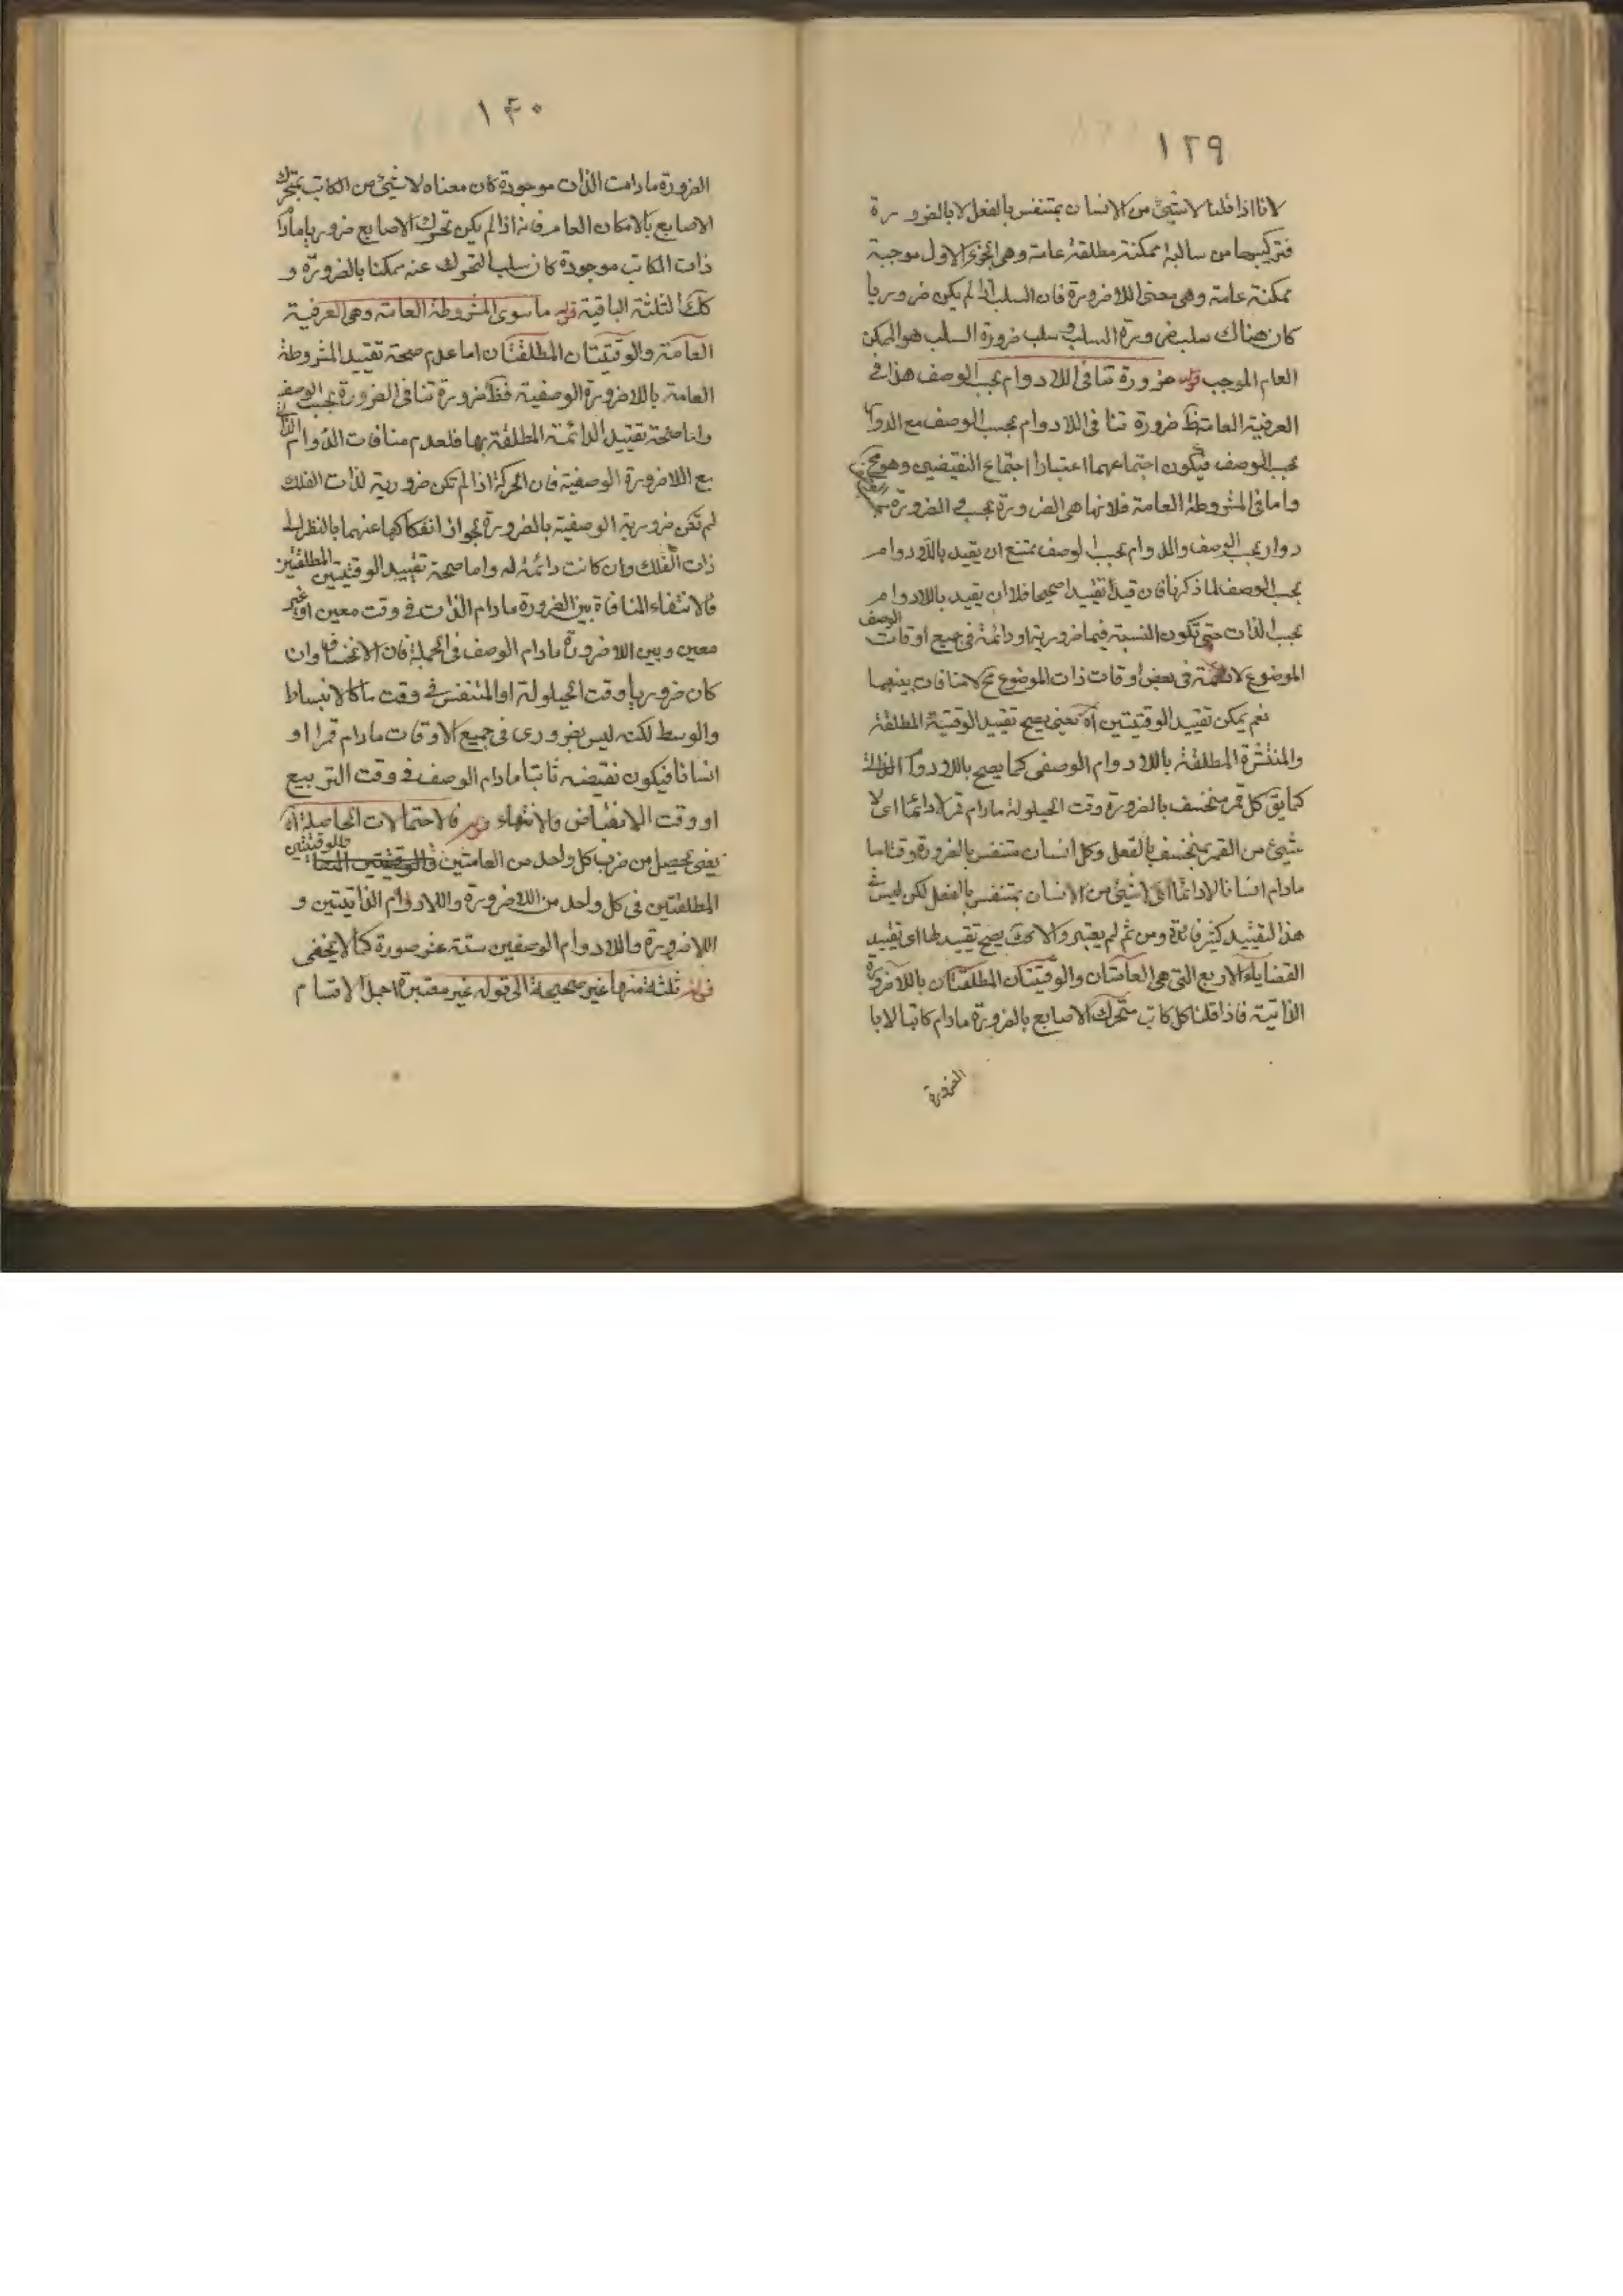 ١٣٩
لانا اذا قلنا لا شيئ من الانسان بمتنفس بالفعل لا بالضرورة
فتركيبها من سالبة ممكنة مطلقة عامة وهى الجزء الاول موجبة
ممكنة عامة وهى معنى اللاضرورة فان السلب اذا لم يكن ضروريا
كان هناك سلب ضرورة السلب وسلب ضرورة السلب هو الممكن
العام الموجب قوله ضرورة تنافى اللادوام بحسب الوصف هذا فى
العرفية العامة ظ ضرورة تنافى اللادوام بحسب الوصف مع الدوام
بحسب الوصف فيكون اجتماعهما اعتبارا اجتماع النقيضين وهو مح
واما فى المشروطة العامة فلانها هى الضرورة بحسب الضرورة
دوام بحسب الوصف والدوام بحسب الوصف يمتنع ان يقيد باللادوام
بحسب الوصف لما ذكرنا فان قيد تقييدا صحيحا فلا ان يقيد باللادوام
بحسب الذات حتى تكون النسبة فيها ضرورية او دائمة فى جميع اوقات الوصف
الموضوع لا دائمة فى بعض اوقات ذات الموضوع مح لا منافات بينهما
نعم يمكن تقييد الوقتيتين اه يعنى يصح تقييد الوقتية المطلقة
والمنتشرة المطلقة باللادوام الوصفى كما يصح باللادوام الذاتى
كما يق كل قمر منخسف بالضرورة وقت الحيلولة مادام قمرا لا دائما اى لا
شيئ من القمر بمنخسف بالفعل وكل انسان متنفس بالضرورة وقتا ما
مادام انسانا لا دائما اى لا شيئ من الانسان بمتنفس بالفعل لكن ليس فى
هذا التقييد كثير فائدة ومن ثم لم يعتبر والا يصح تقييدها اى تقييد
القضايا الاربع التى هى العامتان والوقتيتان المطلقتان باللاضرورة
الذاتية فاذا قلنا كل كاتب متحرك الاصابع بالضرورة مادام كاتبا لا با
الضرورة
١٤٠
الضرورة مادامت الذات موجودة كان معناه لا شيئ من الكاتب بمتحرك
الاصابع بالامكان العام فانه اذا لم يكن تحرك الاصابع ضروريا مادام
ذات الكاتب موجودة كان سلب التحرك عنه ممكنا بالضرورة و
كك الثلثة الباقية قوله ما سوى المشروطة العامة وهى العرفية
العامة والوقتيتان المطلقتان اما عدم صحة تقييد المشروطة
العامة باللاضرورة الوصفية فظ ضرورة تنافى الضرورة بحسب الوصف
واما صحة تقييد الدائمة المطلقة بها فلعدم منافات الدوام الذاتى
مع اللاضرورة الوصفية فان الحركة اذا لم تكن ضرورية لذات الفلك
لم تكن ضرورية الوصفية بالضرورة لجواز انفكاكها عنهما بالنظر الى
ذات الفلك وان كانت دائمة له واما صحة تقييد الوقتيتين المطلقتين
فلانتفاء المنافاة بين الضرورة مادام الذات فى وقت معين او غير
معين وبين اللاضرورة مادام الوصف فى الجملة فان الانخساف وان
كان ضروريا وقت الحيلولة او المتنفس فى وقت ما كالانبساط
والوسط لكنه ليس بضرورى فى جميع الاوقات مادام قمرا او
انسانا فيكون نقيضه ثابتا مادام الوصف فى وقت التربيع
او وقت الانقباض والانتهاء قوله فالاحتمالات الحاصلة اه
يعنى يحصل من ضرب كل واحد من العامتين والوقتيتين
المطلقتين فى كل واحد من اللاضرورة واللادوام الذاتيتين و
اللاضرورة واللادوام الوصفيين ستة عشر صورة كما لا يخفى
قوله ثلثة منها غير صحيحة الى قوله غير معتبرة اجمل الاقسام